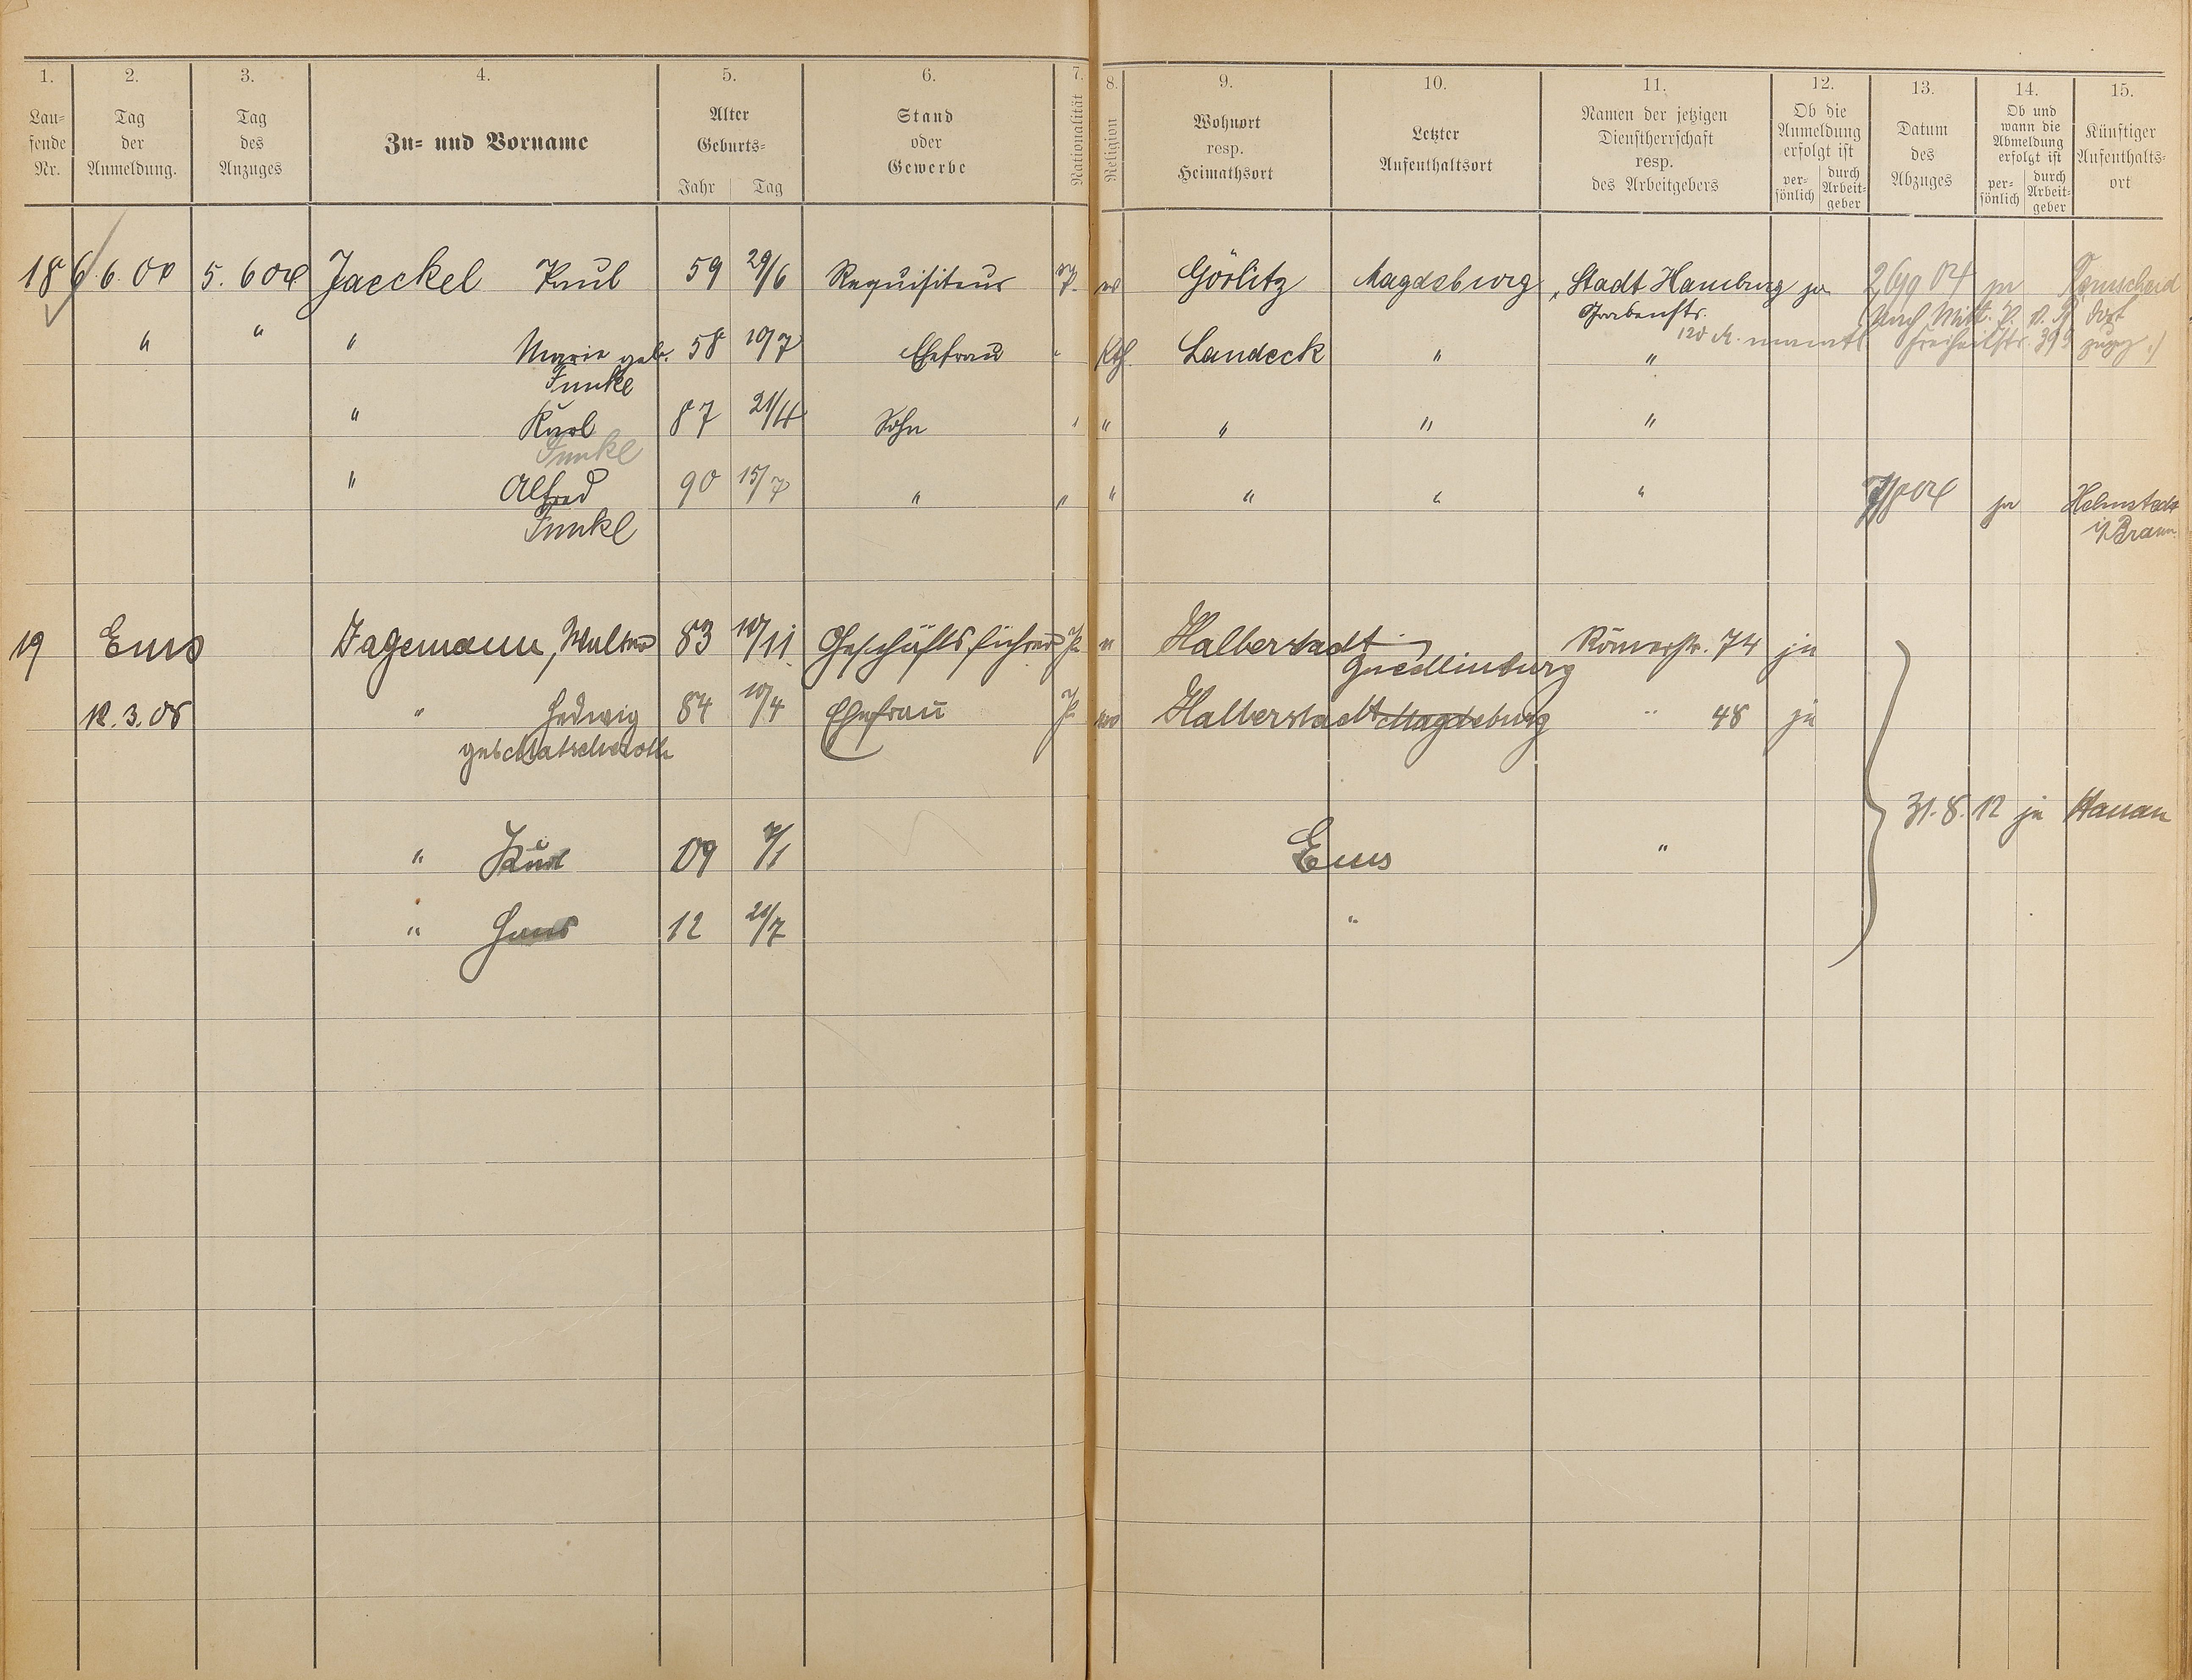 1. 2. 3. 4. 5. 6. 7. 8. 9. 10. 11. 12. 13. 14. 15.
Lau=
fende
Nr.
Tag
der
Anmeldung.
Tag
des
Anzuges
Zu= und Vorname
Alter
Geburts=
Jahr Tag
Stand
oder
Gewerbe
Nationalität
Religion
Wohnort
resp.
Heimathsort
Letzter
Aufenthaltsort
Namen der jetzigen
Dienstherrschaft
resp.
des Arbeitgebers
Ob die
Anmeldung
erfolgt ist
per=
sönlich
durch
Arbeit=
geber
Datum
des
Abzuges
Ob und
wann die
Abmeldung
erfolgt ist
per=
sönlich
durch
Arbeit=
geber
Künftiger
Aufenthalts=
ort
18 6. 6. 04 5. 6 04 Jaeckel Paul 59 29/6 Requisiteur P. Görlitz Magdeburg Stadt Hamburg ja ja Remscheid
Grabenstr.
" " " Marie geb. 58 10/7 Ehefrau " Kth. Landeck " " 120 M. monatl. Freiheitstr. 39
Funke
" Karl 87 21/4 Sohn " " " " "
Funke
" Alfred 90 15/7 " " " " " " ja Helmstedt
Funke i/Braun.
19 Ems Jagemann, Walter 83 10/11 Geschäftsführer P. Halberstadt Römerstr. 74 ja
Quedlinburg
12. 3. 08 " Hedwig 84 10/4 Ehefrau P. Halberstadt Magdeburg " 48 ja
geb.
31. 8. 12 ja Hanau
" Kurt 09 7/1 Ems "
" Hans 12 21/7 "